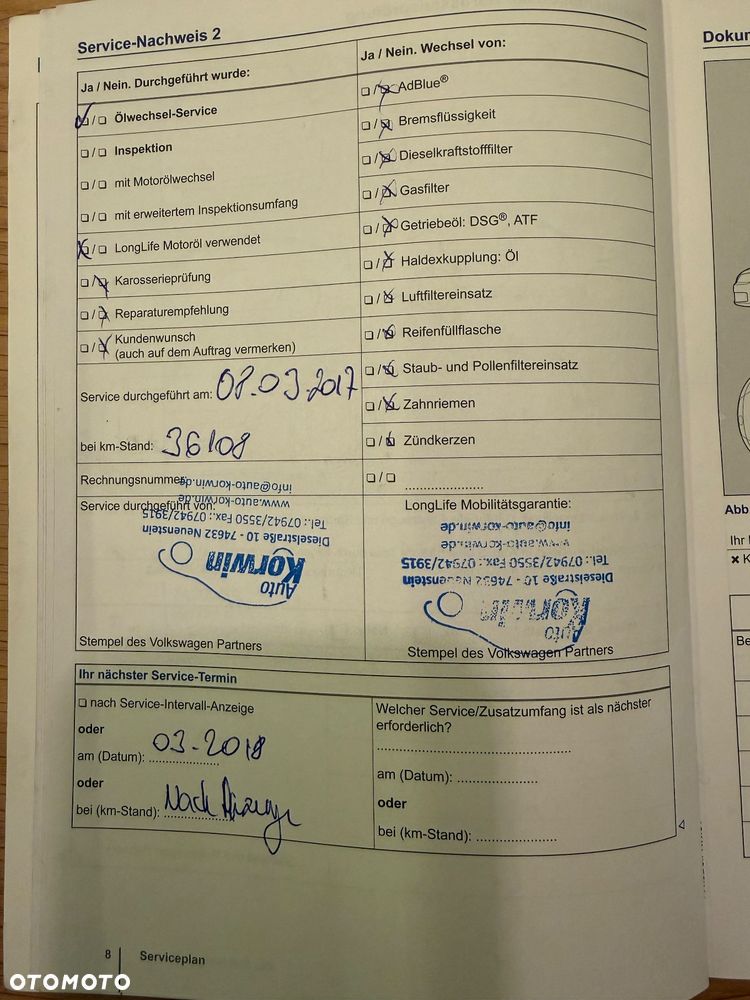 Service-Nachweis 2
Ja / Nein. Durchgeführt wurde:
❏/❏ Ölwechsel-Service
❏/❏ Inspektion
❏/❏ mit Motorölwechsel
❏/❏ mit erweitertem Inspektionsumfang
❏/❏ LongLife Motoröl verwendet
❏/❏ Karosserieprüfung
❏/❏ Reparaturempfehlung
❏/❏ Kundenwunsch
(auch auf dem Auftrag vermerken)
Service durchgeführt am: 08.03.2017
bei km-Stand: 36108
Rechnungsnummer:
Service durchgeführt von:
Auto
Korwin
Dieselstraße 10 - 74632 Neuenstein
Tel.: 07942/3550 Fax.: 07942/3915
www.auto-korwin.de
info@auto-korwin.de
Stempel des Volkswagen Partners
Ja / Nein. Wechsel von:
❏/❏ AdBlue®
❏/❏ Bremsflüssigkeit
❏/❏ Dieselkraftstofffilter
❏/❏ Gasfilter
❏/❏ Getriebeöl: DSG®, ATF
❏/❏ Haldexkupplung: Öl
❏/❏ Luftfiltereinsatz
❏/❏ Reifenfüllflasche
❏/❏ Staub- und Pollenfiltereinsatz
❏/❏ Zahnriemen
❏/❏ Zündkerzen
❏/❏ ......................
LongLife Mobilitätsgarantie:
Auto
Korwin
Dieselstraße 10 - 74632 Neuenstein
Tel.: 07942/3550 Fax.: 07942/3915
www.auto-korwin.de
info@auto-korwin.de
Stempel des Volkswagen Partners
Ihr nächster Service-Termin
❏ nach Service-Intervall-Anzeige
oder
am (Datum): 03-2018
oder
bei (km-Stand): Nach Anzeige
Welcher Service/Zusatzumfang ist als nächster
erforderlich?
am (Datum): ....................
oder
bei (km-Stand): ....................
8 Serviceplan
Dokum
Abb
Ihr
Be
OTOMOTO